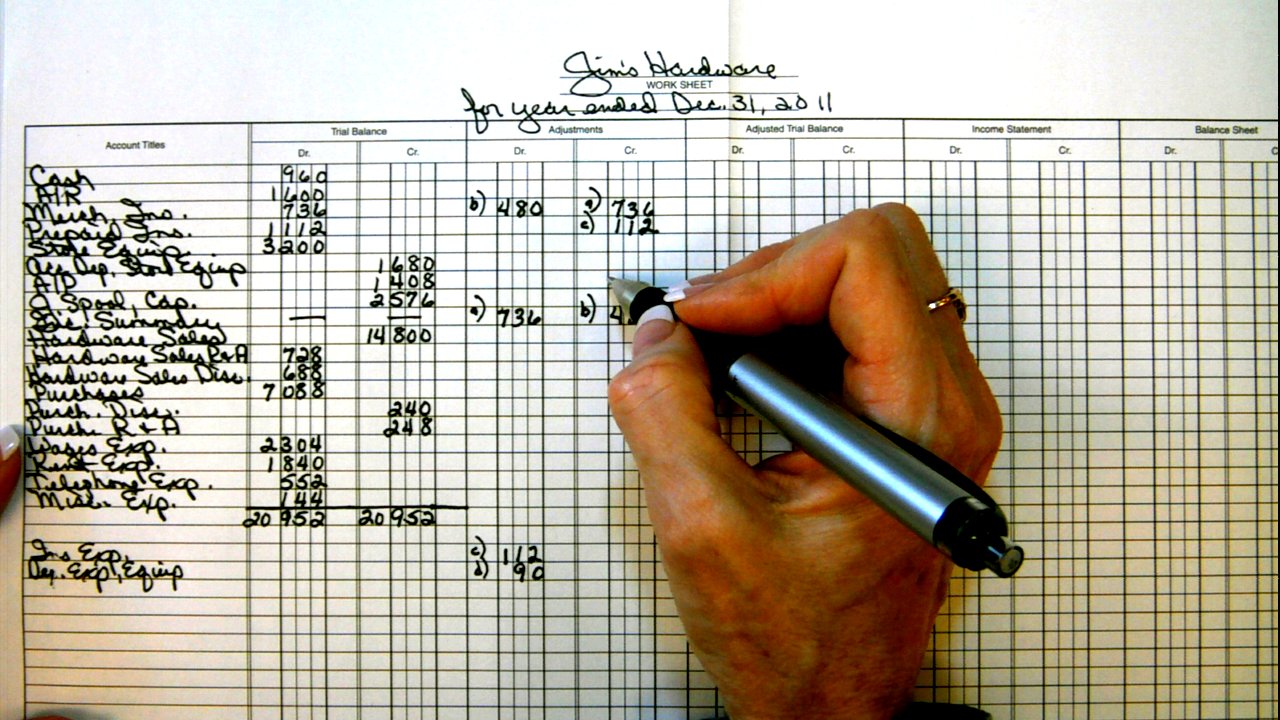 Jim's Hardware
WORK SHEET
for year ended Dec. 31, 2011
Account Titles Trial Balance Adjustments Adjusted Trial Balance Income Statement Balance Sheet
Dr. Cr. Dr. Cr. Dr. Cr. Dr. Cr. Dr. C
Cash 960
A/R 1600
Merch. Inv. 736 b) 480 a) 736
Prepaid Ins. 1112 c) 112
Store Equip. 3200
Acc. Dep. Store Equip 1680
A/P 1408
J. Spool, Cap. 2576
Inc. Summary — — a) 736 b) 4
Hardware Sales 14800
Hardware Sales R+A 728
Hardware Sales Disc. 688
Purchases 7088
Purch. Disc. 240
Purch. R+A 248
Wages Exp. 2304
Rent Exp. 1840
Telephone Exp. 552
Misc. Exp. 144
20952 20952
Ins Exp. c) 112
Dep. Exp, Equip d) 90